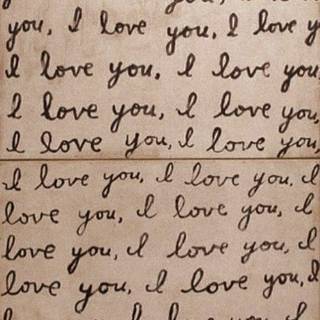 you,
you, I love you, I love y
I love you, I love you
I love you, I love you,
I love you, I love you,
I love you, I love you, I
love you, I love you, I
love you, I love you, I
love you, I love you, I
I love you, I